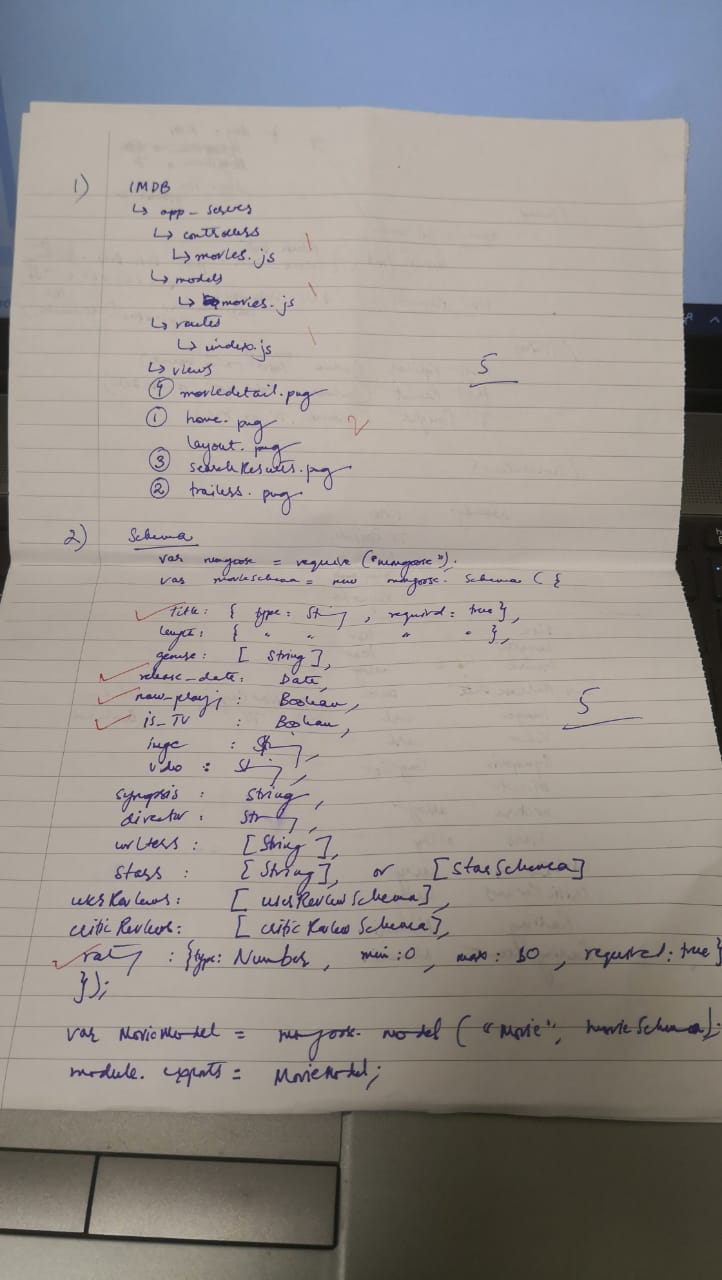 1) IMDB
↳ app_server
↳ controllers
↳ movies.js
↳ models
↳ movies.js
↳ routes
↳ index.js
↳ views
④ moviedetail.pug
① home.pug
layout.pug
③ searchResults.pug
② trailers.pug
5
2) Schema
var mongoose = require ("mongoose");
var movieSchema = new mongoose. Schema ({
title: { type: String, required: true},
length: { " " " " },
genre: [ String ],
release_date: Date,
now_playing: Boolean,
is_TV : Boolean,
image : String,
video : String,
synopsis : String,
director : String,
writers : [String],
stars : [String], or [StarSchema]
userReviews: [userReviewSchema],
criticReviews: [criticReviewSchema],
rating : {type: Number, min:0, max: 10, required: true}
});
5
var MovieModel = mongoose. model ("Movie", movieSchema);
module. exports = MovieModel;